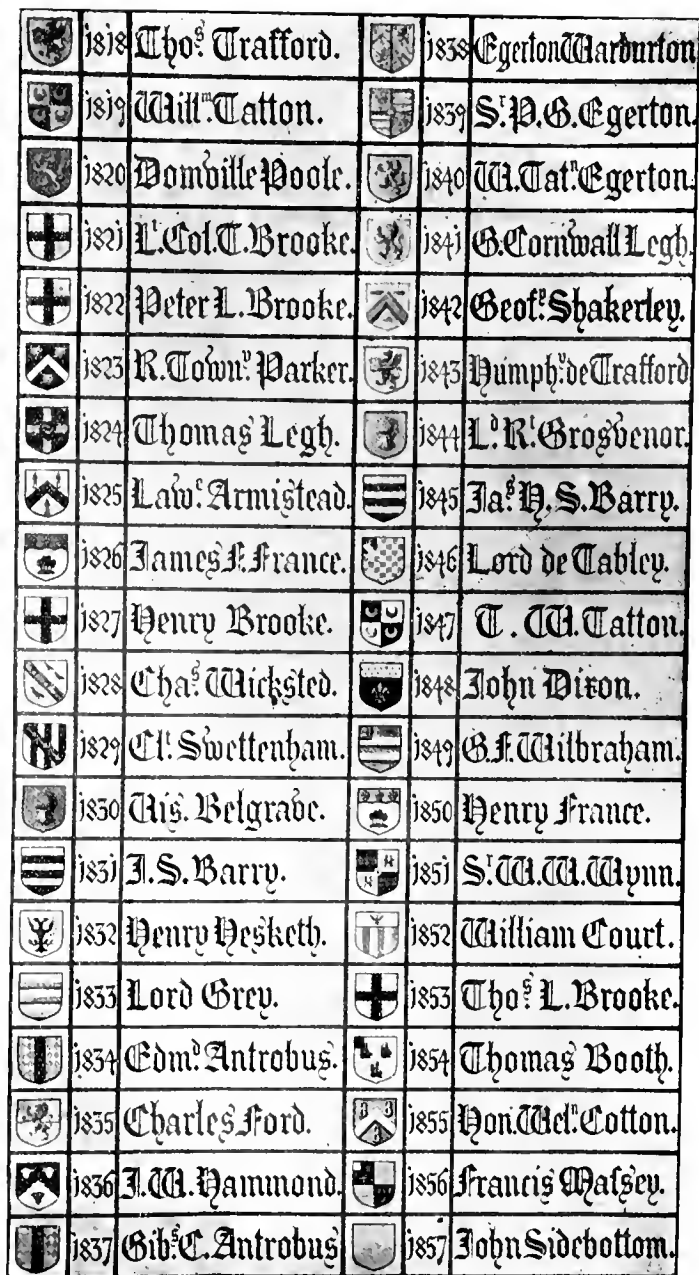 1818 Tho.s Trafford.
1819 Will.m Tatton.
1820 Domville Poole.
1821 L.t Col. T. Brooke.
1822 Peter L. Brooke.
1823 R. Town.d Parker.
1824 Thomas Legh.
1825 Law.e Armistead.
1826 James F. France.
1827 Henry Brooke.
1828 Cha.s Wicksted.
1829 Cl.t Swettenham.
1830 Vis. Belgrave.
1831 J. S. Barry.
1832 Henry Hesketh.
1833 Lord Grey.
1834 Edm.d Antrobus.
1835 Charles Ford.
1836 J. W. Hammond.
1837 Gib.s C. Antrobus
1838 Egerton Warburton
1839 S.r P. G. Egerton.
1840 W. Tat.n Egerton.
1841 G. Cornwall Legh.
1842 Geof.y Shakerley.
1843 Humph.y de Trafford
1844 L.d R.t Grosvenor.
1845 Ja.s H. S. Barry.
1846 Lord de Tabley.
1847 T. W. Tatton.
1848 John Dixon.
1849 G. F. Wilbraham.
1850 Henry France.
1851 S.r W. W. Wynn.
1852 William Court.
1853 Tho.s L. Brooke.
1854 Thomas Booth.
1855 Hon. Wel.n Cotton.
1856 Francis Maſsey.
1857 John Sidebottom.